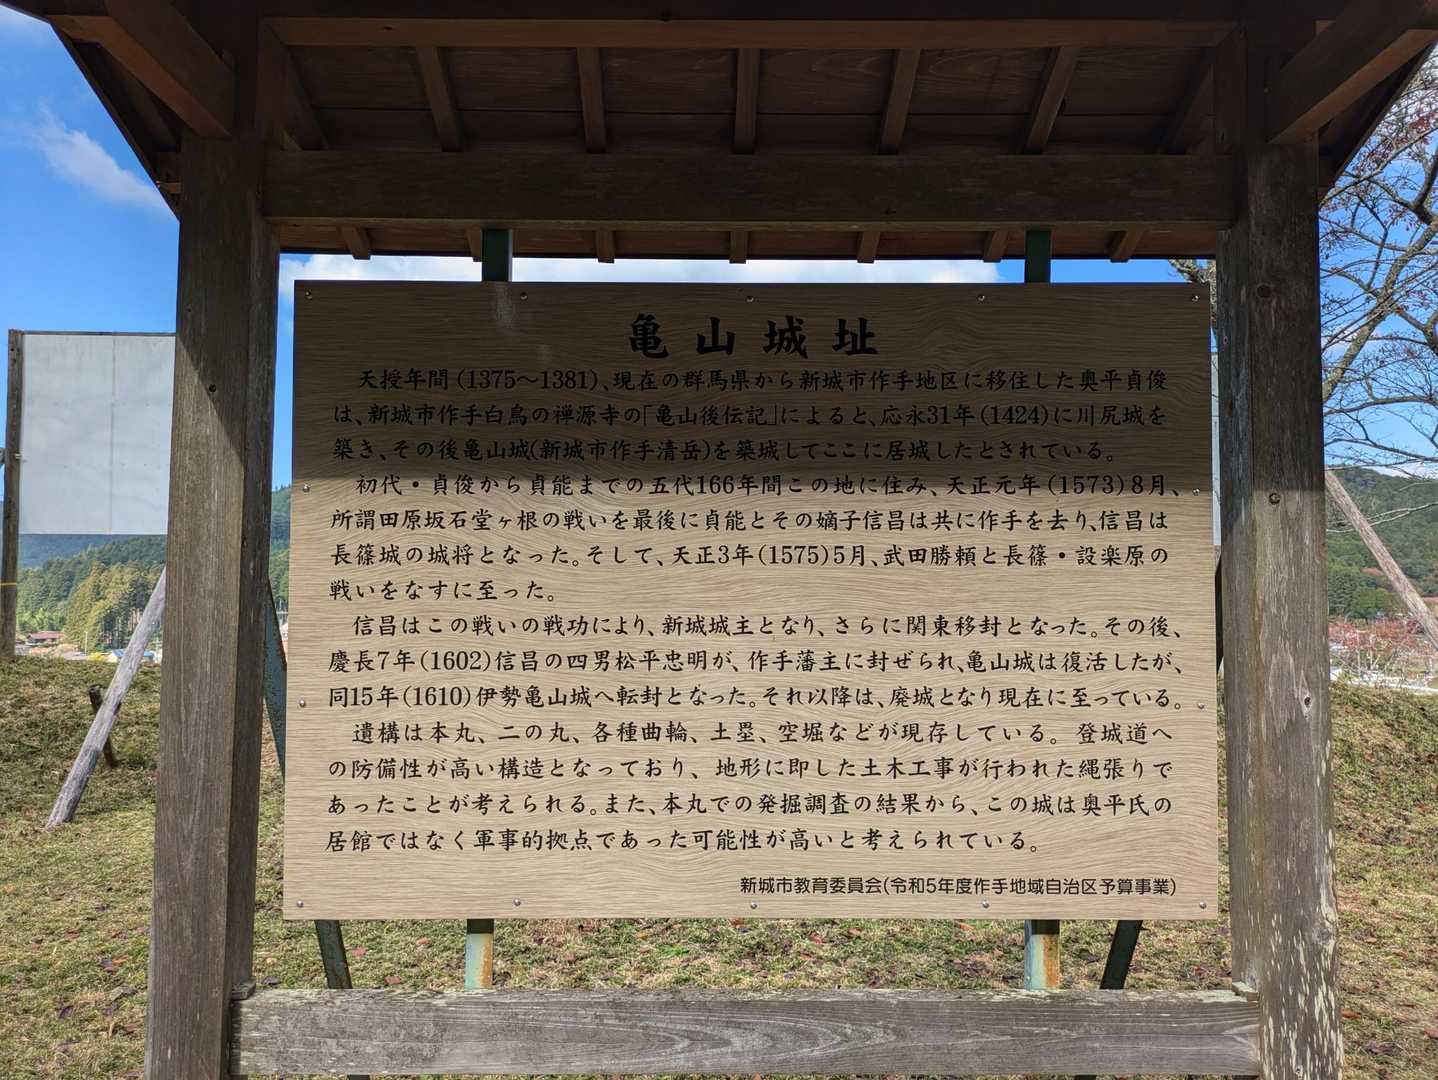 亀山城址
天授年間(1375～1381)、現在の群馬県から新城市作手地区に移住した奥平貞俊
は、新城市作手白鳥の禅源寺の「亀山後伝記」によると、応永31年(1424)に川尻城を
築き、その後亀山城(新城市作手清岳)を築城してここに居城したとされている。
初代・貞俊から貞能までの五代166年間この地に住み、天正元年(1573)8月、
所謂田原坂石堂ヶ根の戦いを最後に貞能とその嫡子信昌は共に作手を去り、信昌は
長篠城の城将となった。そして、天正3年(1575)5月、武田勝頼と長篠・設楽原の
戦いをなすに至った。
信昌はこの戦いの戦功により、新城城主となり、さらに関東移封となった。その後、
慶長7年(1602)信昌の四男松平忠明が、作手藩主に封ぜられ、亀山城は復活したが、
同15年(1610)伊勢亀山城へ転封となった。それ以降は、廃城となり現在に至っている。
遺構は本丸、二の丸、各種曲輪、土塁、空堀などが現存している。登城道へ
の防備性が高い構造となっており、地形に即した土木工事が行われた縄張りで
あったことが考えられる。また、本丸での発掘調査の結果から、この城は奥平氏の
居館ではなく軍事的拠点であった可能性が高いと考えられている。
新城市教育委員会(令和5年度作手地域自治区予算事業)